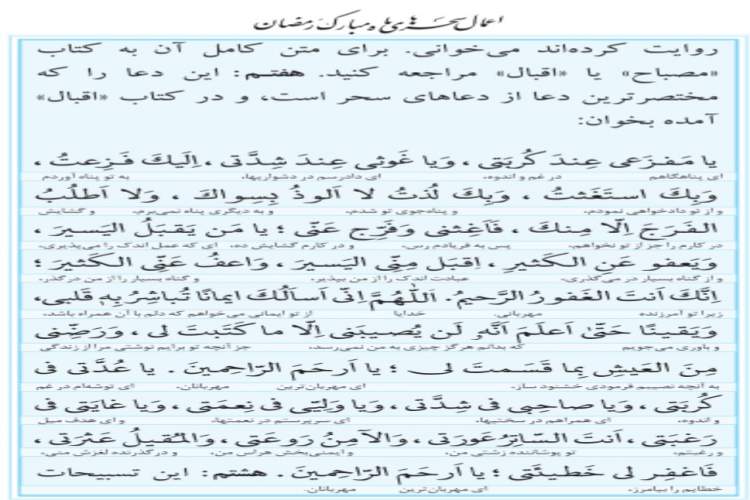 اعمال سحرهای ماه مبارک رمضان
روایت کرده‌اند می‌خوانی. برای متن کامل آن به کتاب
«مصباح» یا «اقبال» مراجعه کنید. هفتم: این دعا را که
مختصرترین دعا از دعاهای سحر است، و در کتاب «اقبال»
آمده بخوان:
یا مَفزَعی عِندَ کُربَتی ، وَیا غَوثی عِندَ شِدَّتی ، اِلَیكَ فَزِعتُ ،
ای پناهگاهم در غم و اندوه، ای دادرسم در دشواریها، به تو پناه آوردم
وَبِكَ استَغَثتُ ، وَبِكَ لُذتُ لا اَلوذُ بِسِواكَ ، وَلا اَطلُبُ
و از تو دادخواهی نمودم، و پناه‌جوی تو شدم، و به دیگری پناه نمی‌برم، و گشایش
الفَرَجَ اِلّا مِنكَ ، فَاَغِثنی وَفَرِّج عَنّی ؛ یا مَن یَقبَلُ الیَسیرَ ،
در کارم را جز از تو نخواهم، پس به فریادم رس، و در کارم گشایش ده، ای که عمل اندک را می‌پذیری،
وَیَعفو عَنِ الكَثیرِ ، اِقبَل مِنِّی الیَسیرَ ، وَاعفُ عَنِّی الكَثیرَ ؛
و از گناه بسیار در می‌گذری، عبادت اندک را از من بپذیر، و گناه بسیار را از من درگذر،
اِنَّكَ اَنتَ الغَفورُ الرَّحیمُ. اَللّٰهُمَّ اِنّی اَسأَلُكَ ایمانًا تُباشِرُ بِهِ قَلبی،
زیرا تو آمرزنده مهربانی. خدایا از تو ایمانی می‌خواهم که دلم با آن همراه باشد،
وَیَقینًا حَتّیٰ اَعلَمَ اَنَّهُ لَن یُصیبَنی اِلّا ما كَتَبتَ لی ، وَرَضِّنی
و باوری می‌جویم که بدانم هرگز چیزی به من نمی‌رسد، جز آنچه تو برایم نوشتی مرا از زندگی
مِنَ العَیشِ بِما قَسَمتَ لی ؛ یا اَرحَمَ الرّاحِمینَ . یا عُدَّتی فی
به آنچه نصیبم فرمودی خشنود ساز، ای مهربان‌ترین مهربانان. ای توشه‌ام در غم
كُربَتی ، وَیا صاحِبی فی شِدَّتی ، وَیا وَلِیّی فی نِعمَتی ، وَیا غایَتی فی
و اندوه، ای همراهم در سختیها، ای سرپرستم در نعمتها، و ای هدف میل
رَغبَتی ، اَنتَ السّاتِرُ عَورَتی ، وَالآمِنُ رَوعَتی ، وَالمُقیلُ عَثرَتی ،
و رغبتم، تو پوشاننده زشتی من، و ایمنی‌بخش هراس من، و درگذرنده لغزش منی،
فَاغفِر لی خَطیئَتی ؛ یا اَرحَمَ الرّاحِمینَ . هشتم: این تسبیحات
خطایم را بیامرز، ای مهربان‌ترین مهربانان.